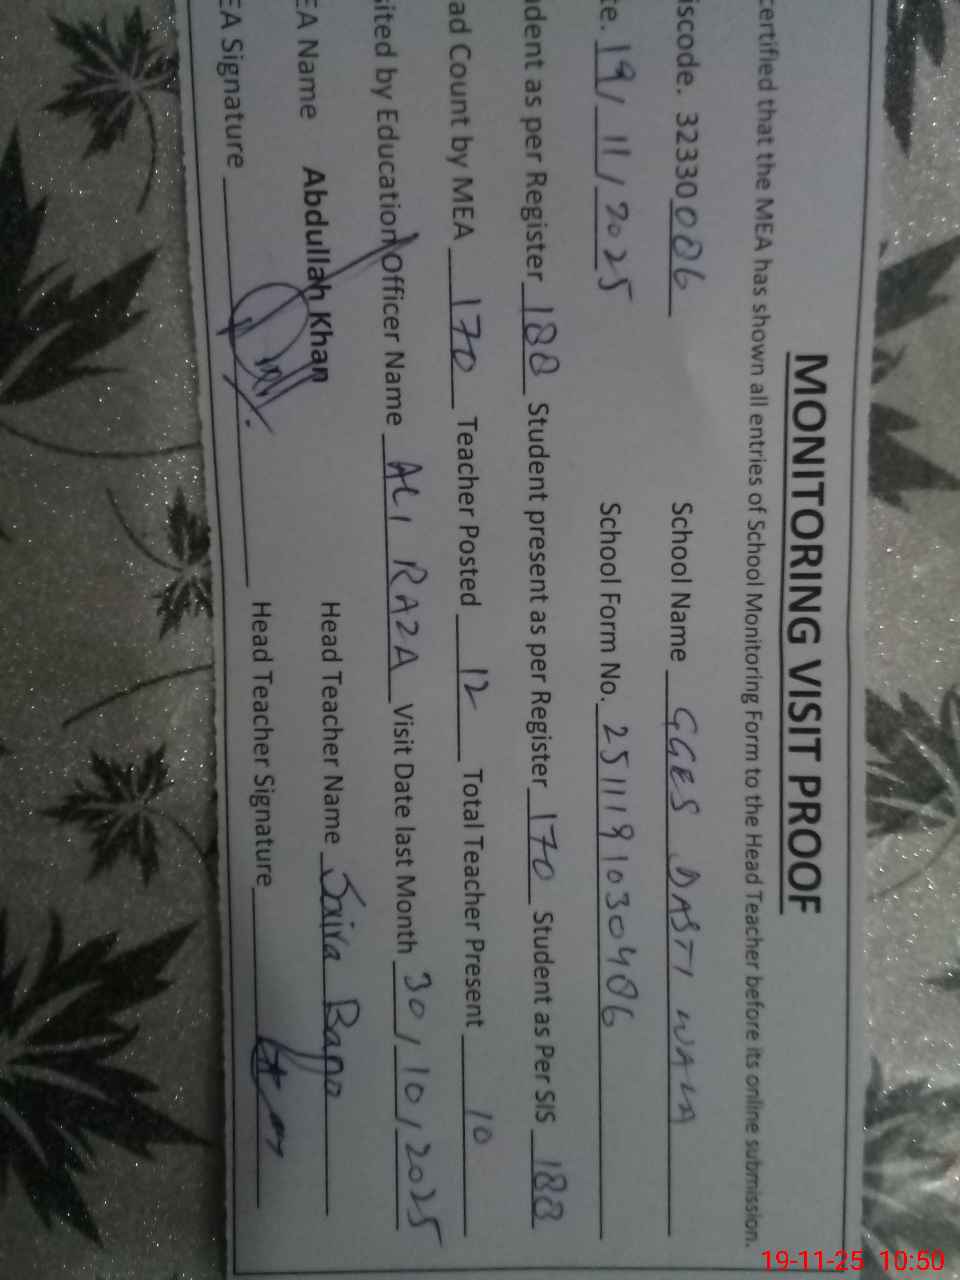 MONITORING VISIT PROOF
certified that the MEA has shown all entries of School Monitoring Form to the Head Teacher before its online submission.
iscode. 32330086 School Name GGES DASTI WALA
te. 19/11/2025 School Form No. 25111910304086
dent as per Register 188 Student present as per Register 170 Student as Per SIS 188
ad Count by MEA 170 Teacher Posted 12 Total Teacher Present 10
sited by Education Officer Name ALI RAZA Visit Date last Month 30/10/2025
EA Name Abdullah Khan Head Teacher Name Saira Bano
EA Signature Head Teacher Signature
19-11-25 10:50